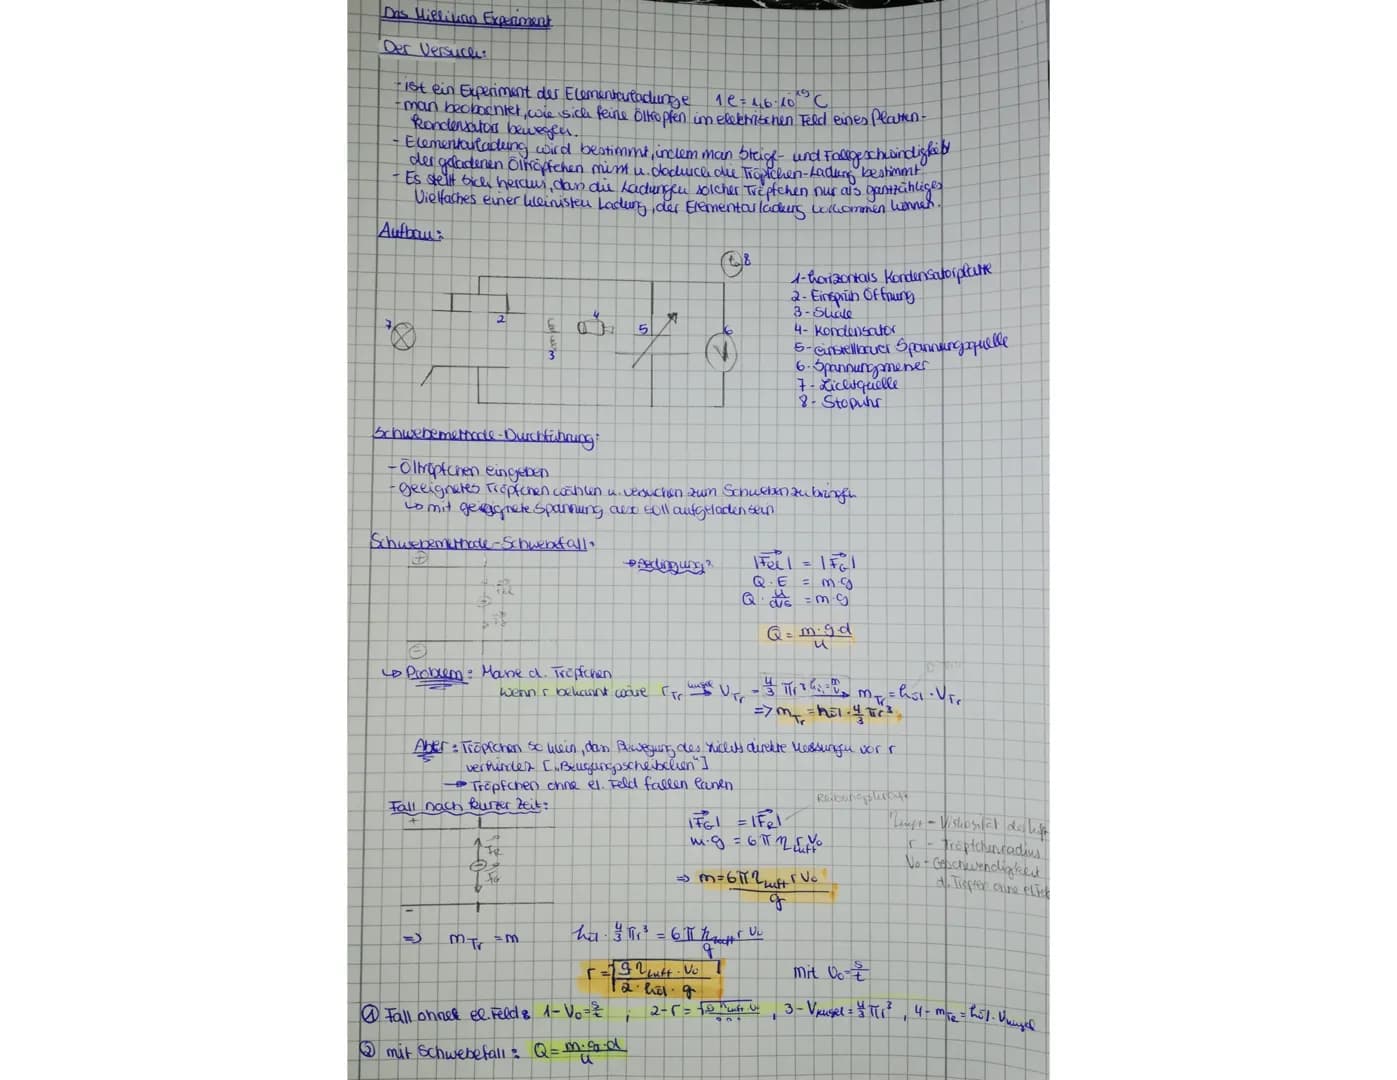 Das Millikan Experiment
Der Versuch:
- ist ein Experiment der Elementarladunge 1e = 1,6·10⁻¹⁹ C
- man beobachtet, wie sich feine Öltropfen im elektrischen Feld eines Platten-
kondensators bewegen.
- Elementarladung wird bestimmt, indem man Steige- und Fallgeschwindigkeit
der geladenen Öltröpfchen misst u. dadurch die Tröpfchen-Ladung bestimmt
- Es stellt sich heraus, dass die Ladungen solcher Tröpfchen nur als ganzzähliges
Vielfaches einer kleinsten Ladung, der Elementarladung vorkommen können.
Aufbau:
8
7 2 3 4 5 6 V
1- horizontals Kondensatorplatte
2- Einsprüh Öffnung
3- Skale
4- Kondensator
5- einstellbarer Spannungsquelle
6- Spannungsmesser
7- Lichtquelle
8- Stopuhr
Schwebemethode-Durchführung:
- Öltröpfchen eingeben
- geeignetes Tröpfchen wählen u. versuchen zum Schweben zu bringen
↳ mit geeignete Spannung soll aufgeladen sein
Schwebemethode-Schwebefall:
+
→ Bedingung: |F⃗el| = |F⃗G|
Q·E = m·g
Q · = m·g
Q = m·g·d / U
-
↳ Problem: Masse d. Tröpfchen
Wenn r bekannt wäre r_Tr →Kugel V_Tr = 4/3 πr³ → m_Tr = ρöl · V_Tr
=> m_Tr = ρöl · 4/3 πr³
Aber: Tröpfchen so klein, dass Bewegung des Lichts direkte Messungen von r
verhindert ["Beugungsscheibchen"]
→ Tröpfchen ohne el. Feld fallen lassen
Fall nach kurzer Zeit:
Reibungskraft
+
|F⃗G| = |F⃗R|
m·g = 6π η_Luft r V₀
η_Luft - Viskosität der Luft
r - Tröpfchenradius
V₀ - Geschwindigkeit
d. Tröpfer ohne el. Feld
F⃗R
F⃗G
=> m = 6π η_Luft r V₀ / g
-
=> m_Tr = m ρöl · 4/3 πr³ = 6π η_Luft r V₀ / g
r = √(9 η_Luft · V₀ / 2 · ρöl · g) mit V₀ = s/t
① Fall ohne el. Feld: 1- V₀ = s/t ; 2- r = √(9 η_Luft V₀ / ...) , 3- V_Kugel = 4/3 πr³ , 4- m_Tr = ρöl · V_Kugel
② mit Schwebefall: Q = m·g·d / U